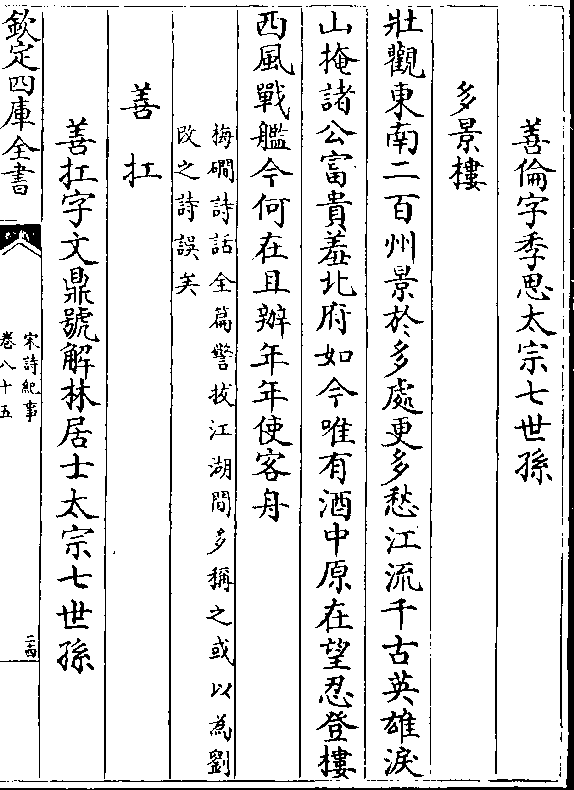 善倫字季思太宗七世孫
多景樓
壯觀東南二百州景於多處更多愁江流千古英雄淚
山掩諸公富貴羞北府如今唯有酒中原在望忍登樓
西風戰艦今何在且辦年年使客舟
梅磵詩話全篇警拔江湖間多稱之或以為劉
改之詩誤矣
善扛
善扛字文鼎號解林居士太宗七世孫
欽定四庫全書
宋詩紀事
卷八十五
二四